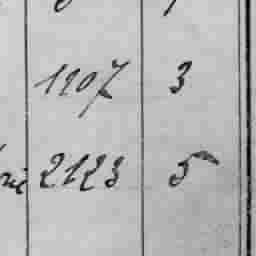 1907 3
2123 5